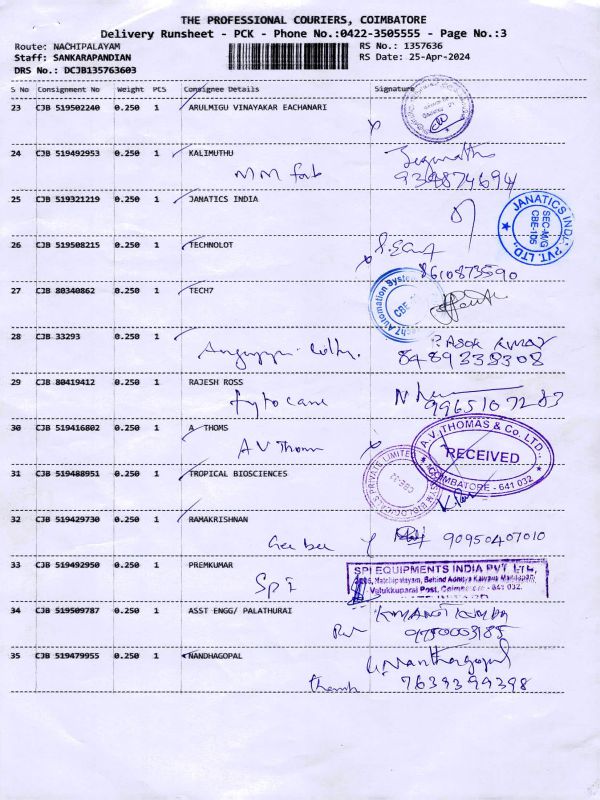 THE PROFESSIONAL COURIERS, COIMBATORE
Delivery Runsheet - PCK - Phone No.:0422-3505555 - Page No.:3
Route: NACHIPALAYAM RS No.: 1357636
Staff: SANKARAPANDIAN RS Date: 25-Apr-2024
DRS No.: DCJB135763603
S No Consignment No Weight PCS Consignee Details Signature
23 CJB 519502240 0.250 1 ARULMIGU VINAYAKAR EACHANARI
24 CJB 519492953 0.250 1 KALIMUTHU
MM
25 CJB 519321219 0.250 1 JANATICS INDIA
JANATICS INDIA PVT. LTD.
SEC-M/G
CBE-105
26 CJB 519508215 0.250 1 TECHNOLOT
8610873590
27 CJB 80340862 0.250 1 TECH7
Tech7 Automation System
CBE
28 CJB 33293 0.250 1
P. ASOK KUMAR
8489338308
29 CJB 80419412 0.250 1 RAJESH ROSS
9965107283
30 CJB 519416802 0.250 1 A THOMS
A V Thom
A.V. THOMAS & Co. LTD.,
RECEIVED
COIMBATORE - 641 032
31 CJB 519488951 0.250 1 TROPICAL BIOSCIENCES
PRIVATE LIMITED
CBE-32
32 CJB 519429730 0.250 1 RAMAKRISHNAN
Gee bee 9095040701 0
33 CJB 519492950 0.250 1 PREMKUMAR
SPI
SPI EQUIPMENTS INDIA PVT LTD.
Behind Adhitya Kalyana Mandapam
Valukkuparai Post, Coimbatore - 641 032.
34 CJB 519509787 0.250 1 ASST ENGG/ PALATHURAI
9750003185
35 CJB 519479955 0.250 1 NANDHAGOPAL
7639399398